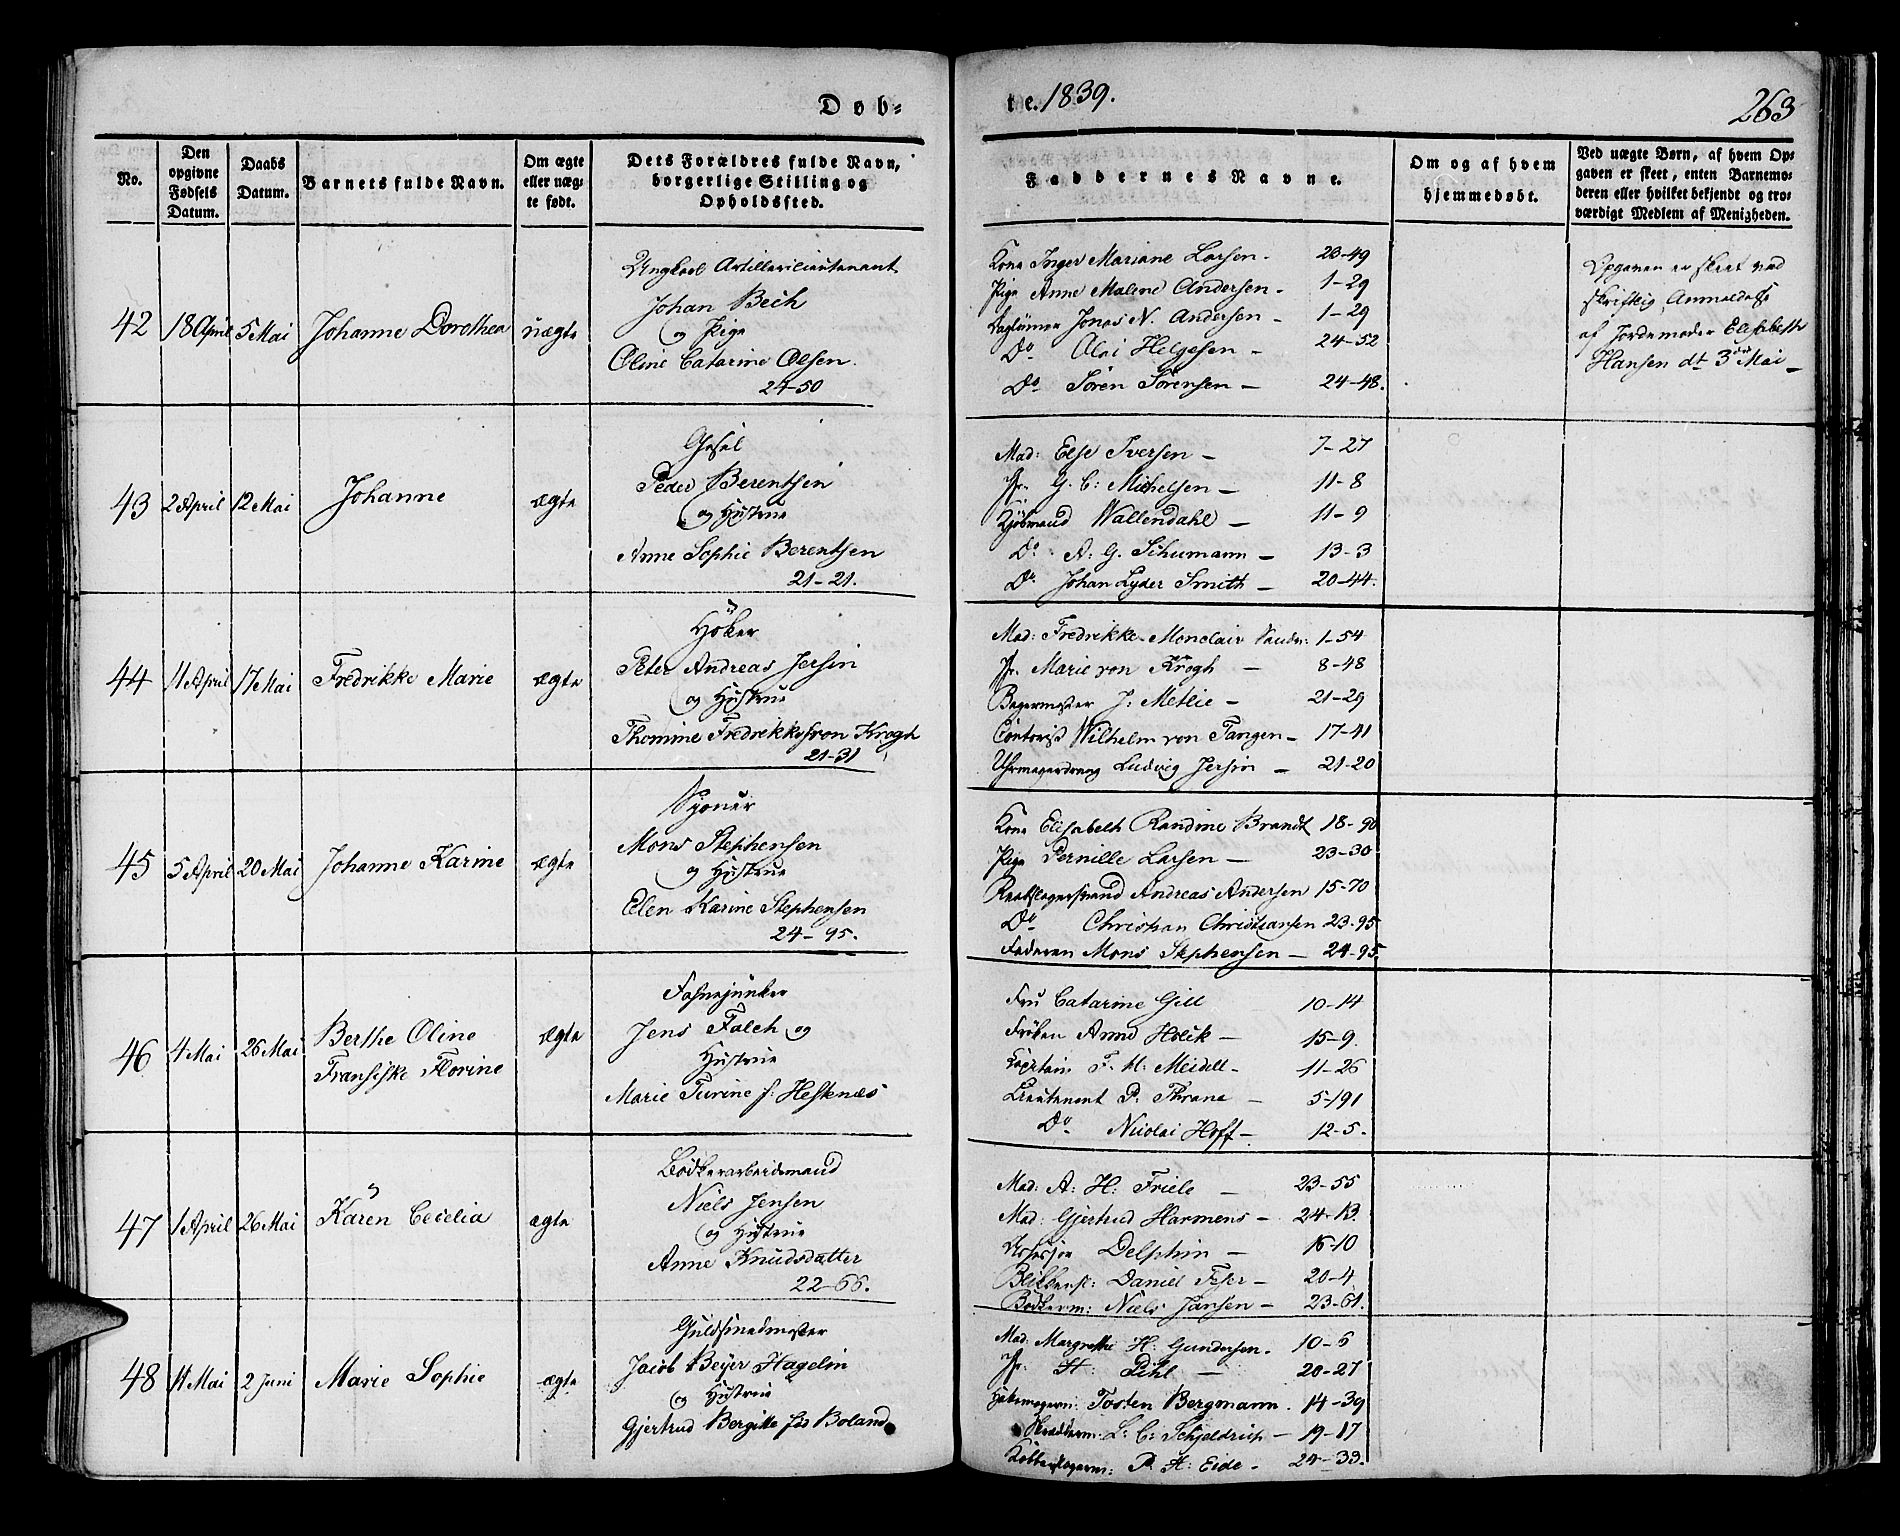 Døb-
te. 1839.
263
No.
Den opgivne Fødsels Datum.
Daabs Datum.
Barnets fulde Navn.
Om ægte eller uægte født.
Dets Forældres fulde Navn, borgerlige Stilling og Opholdssted.
Faddernes Navne.
Om og af hvem hjemmedøbt.
Ved uægte Børn, af hvem Opgaven er skeet, enten Barnemoderen eller hvilket bekjendt og troværdigt Medlem af Menigheden.
42
18 April
5 Mai
Johanne Dorothea
uægte
Ungkarl Artillerilieutenant
Johan Bech
og Pige
Oline Catarine Olsen.
24-50
Kone Inger Mariane Larsen. 23-49
Pige Anne Malene Andersen - 1-29
Jonas N. Andersen - 1-29
Do Olai Helgesen - 24-52
Do Sören Sörensen - 24-48.
Opgaven er skeet ved
skriftlig Anmeldelse
af Jordemoder Elisabeth
Hansen dt 3die Mai
43
2 April
12 Mai
Johanne
ægte
Peder Berentsen
og Hustrue
Anne Sophie Berentsen
21-21.
Mad: Else Iversen - 7-27
Jfr. G. C: Michelsen - 11-8
Kjöbmand Wallendahl - 11-9
Do A. G. Schumann - 13-3
Do Johan Lyder Smith - 20-44.
44
11 April
17 Mai
Fredrikke Marie
ægte
Höker
Peter Andreas Jersin
og Hustrue
Thomine Fredrikke von Krogh
21-31
Mad: Fredrikke Monclair 1-54
Jfr. Marie von Krogh - 8-48
Bagermester J: Metlie - 21-29
Contorist Wilhelm von Tangen - 17-41
Uhrmagerdreng Ludvig Jersin - 21-20
45
5 April
20 Mai
Johanne Karine
ægte
Mons Stephensen
og Hustrue
Elen Karine Stephensen
24-95.
Kone Elisabeth Randine Brandt 18-90
Pige Pernille Larsen - 23-30
Andreas Andersen 15-70
Do Christian Christiansen 23-95
Faderen Mons Stephensen - 24-95.
46
4 Mai
26 Mai
Berthe Oline
Fransiske Florine
ægte
Fahnejunker
Jens Falch og
Hustrue
Marie Turine f: Hestenæs
Fru Catarine Gill 10-14
Fröken Anne Holck - 15-9.
Capitain F. M: Meidell - 11-26
Lieutenant P. Thrane - 5-191
Do Nicolai Hoff - 12-5.
47
1 April
26 Mai
Karen Cecelia
ægte
Bödkerarbeidsmand
Niels Jensen
og Hustrue
Anne Knudsdatter
22-66.
Mad: A: H: Friele - 23-55
Mad: Gjertrud Harmens - 24-13.
Delphin - 16-10
Daniel - 20-4
Bödkerm: Niels Jansen - 23-61.
48
11 Mai
2 Juni
Marie Sophie
ægte
Guldsmedmester
Jacob Beyer Hagelin
og Hustrue
Gjertrud Bergitte föd Boland
Mad: Margrethe H: Gundersen. 10-6
Jfr. H: Pihl - 20-27
Tosten Bergmann. 14-39
Skrædderm: L: C: Schjeldrup - 19-17
Kobberslagerm: P. A: Eide. - 24-33.